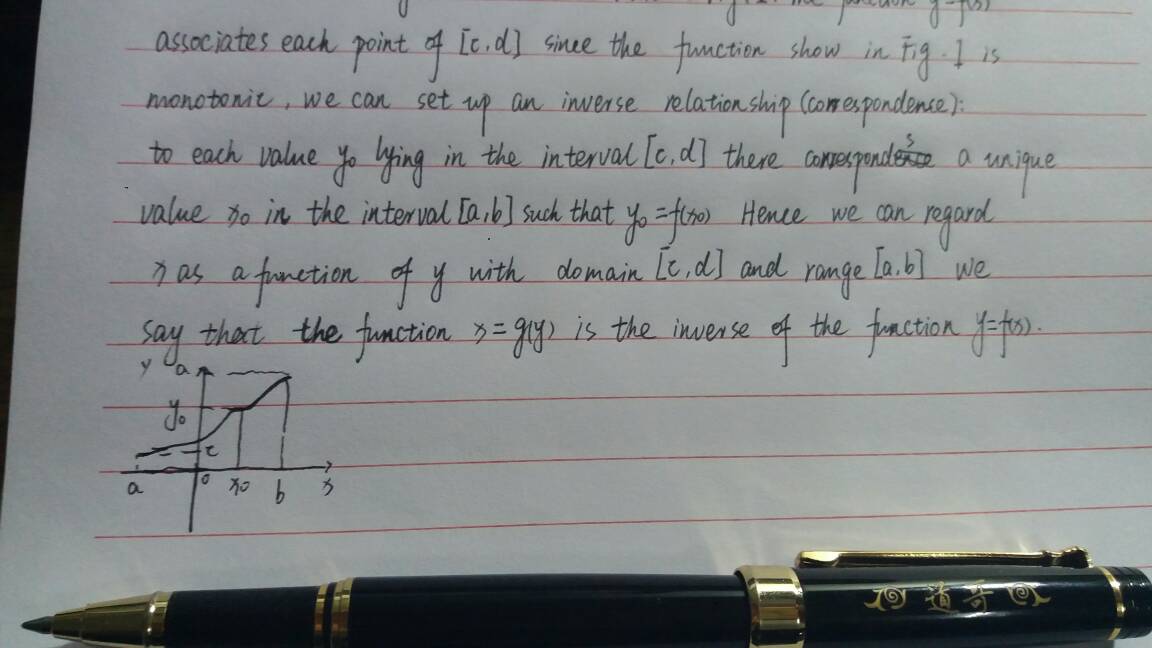 function y=f(x)
associates each point of [c,d] since the function show in Fig.1 is
monotonic, we can set up an inverse relationship (correspondence):
to each value y₀ lying in the interval [c,d] there corresponds a unique
value x₀ in the interval [a,b] such that y₀=f(x₀) Hence we can regard
x as a function of y with domain [c,d] and range [a,b] we
say that the function x=g(y) is the inverse of the function y=f(x).
y a
y₀
c
a 0 x₀ b x
道哥